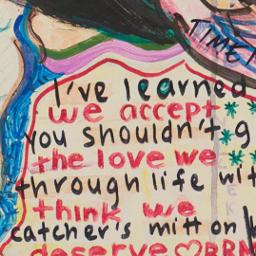 TIME
I've learned
we accept
you shouldn't g
the love we
through life wit
think we
catcher's mitt on
deserve ♡ BRM